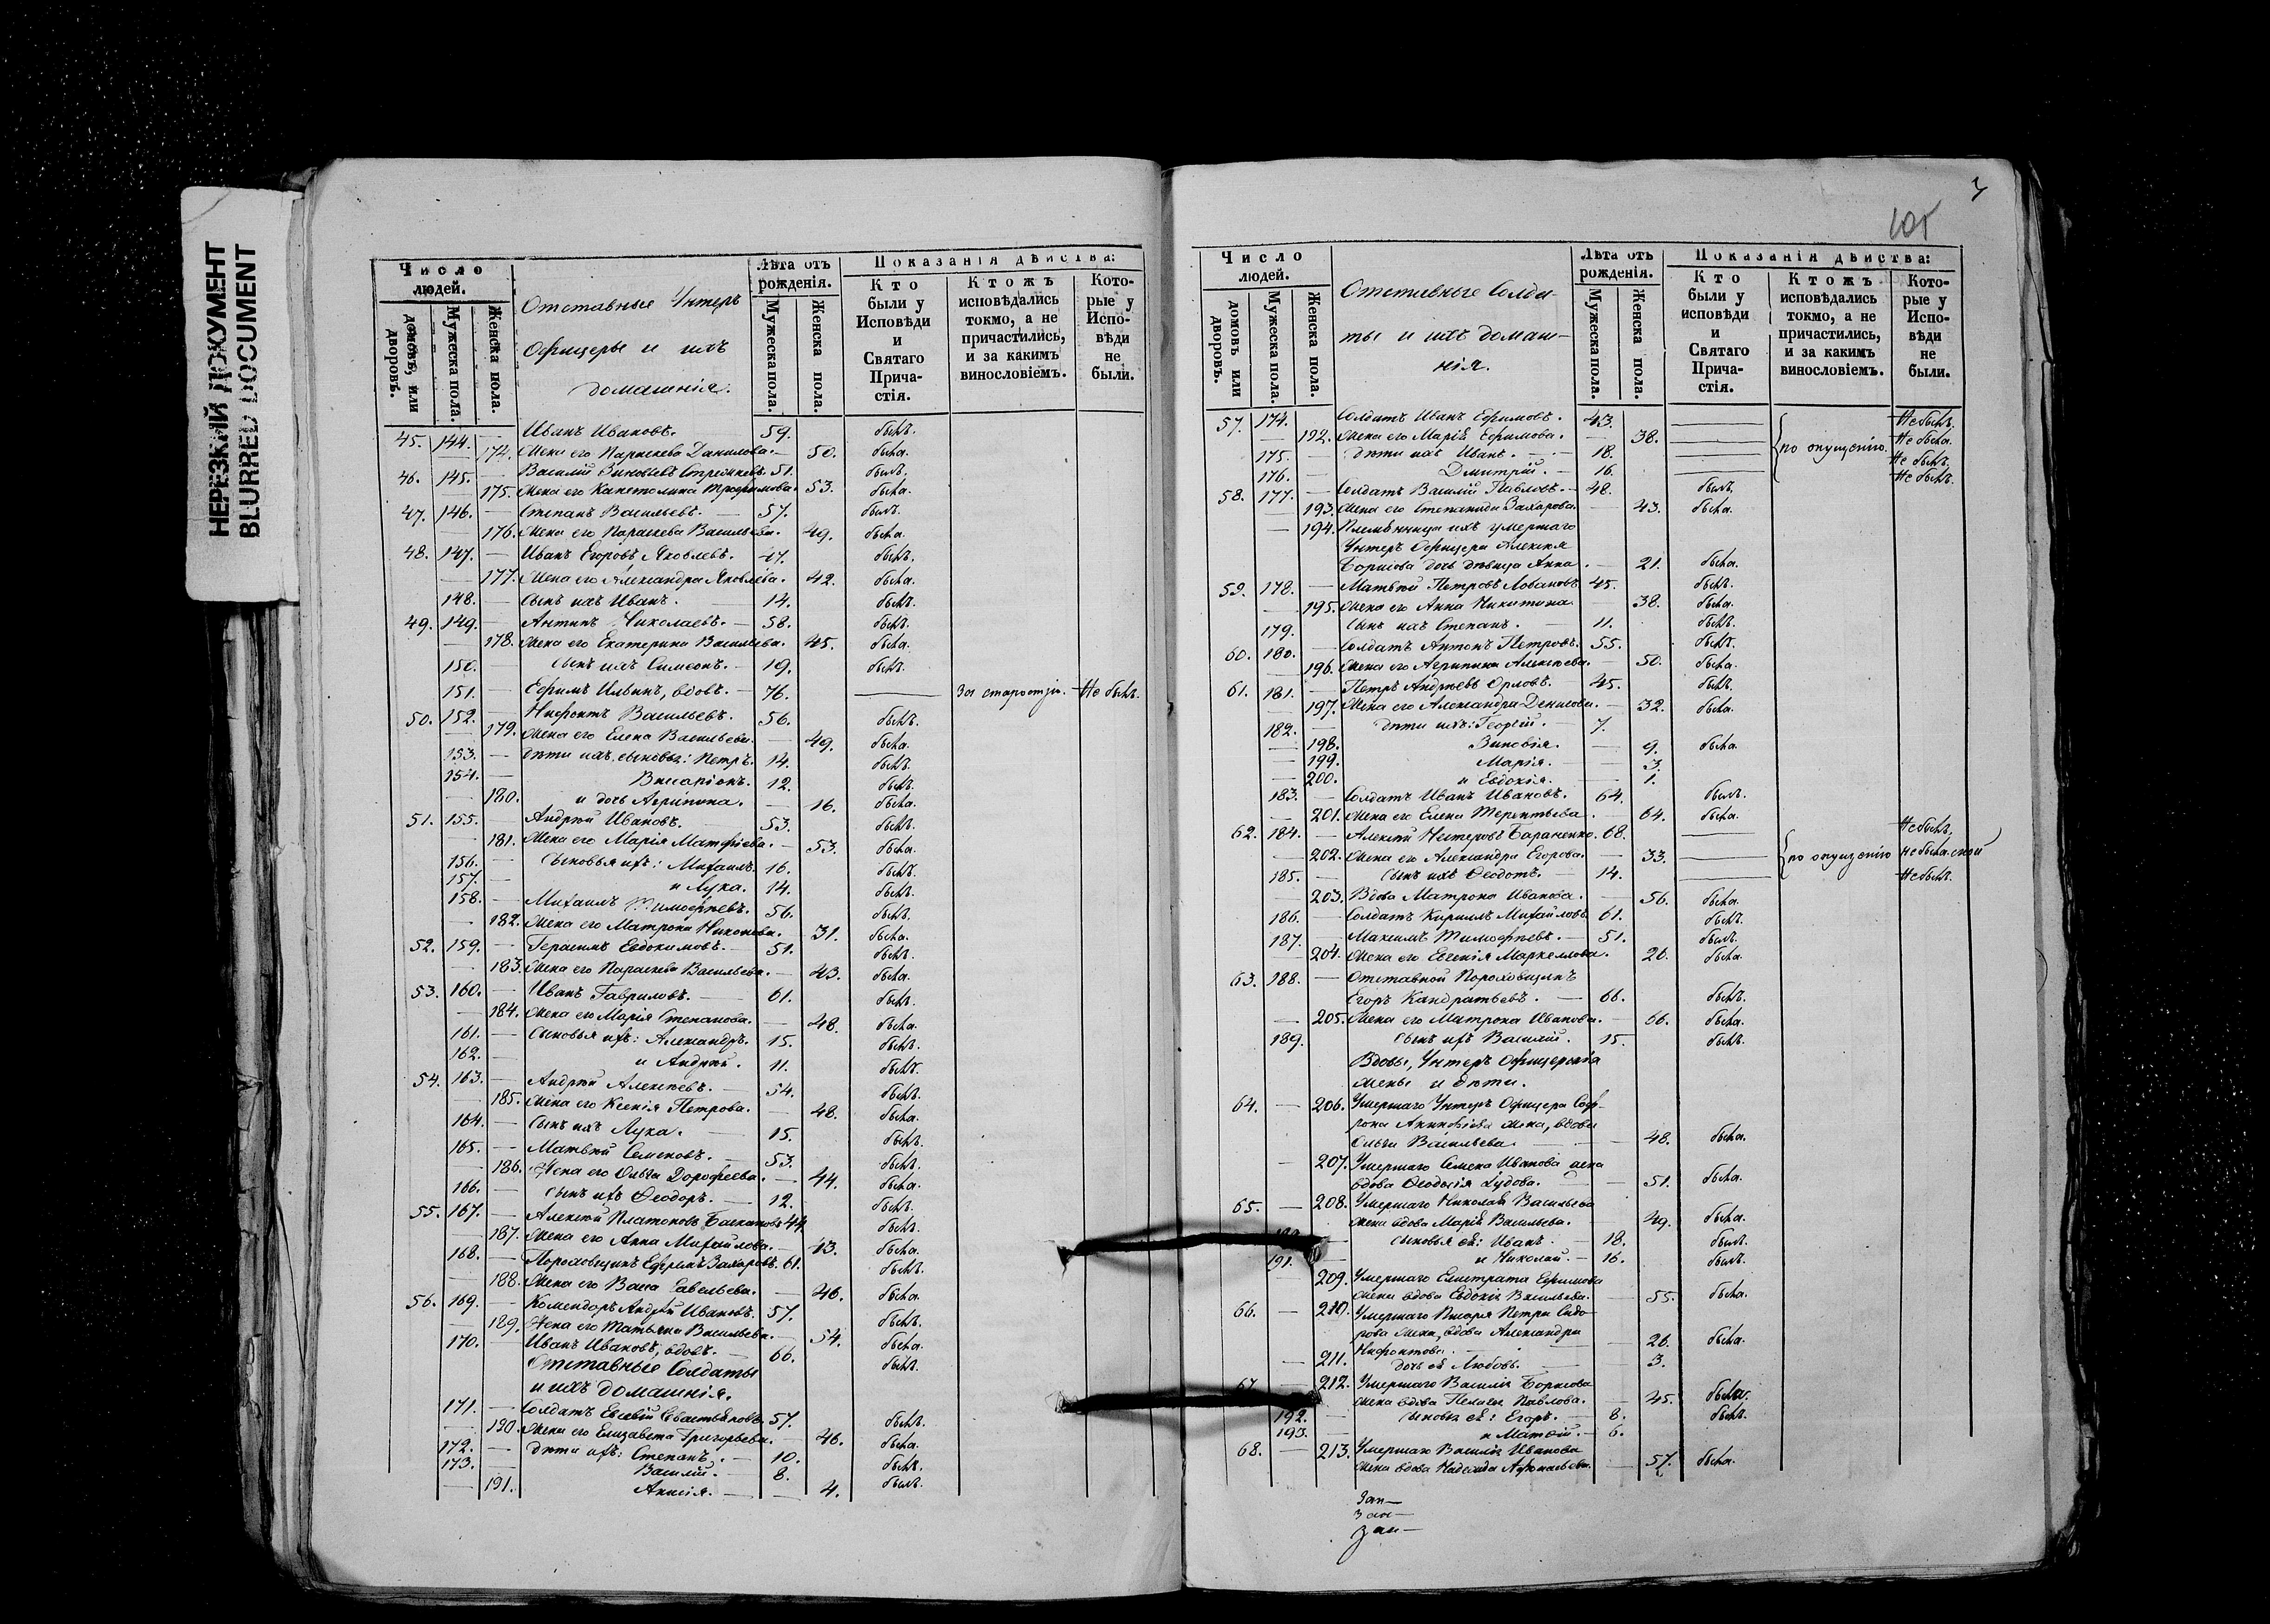 НЕРЕЗКИЙ ДОКУМЕНТ
BLURRED DOCUMENT
Число людей.
домовъ, или дворовъ.
Мужеска пола.
Женска пола.
Отставные Унтеръ
Офицеры и ихъ
домашнія.
Лѣта отъ рожденія.
Мужеска пола.
Женска пола.
Показанія дѣйства:
Кто были у Исповѣди и Святаго Причастія.
Ктожъ исповѣдались токмо, а не причастились, и за какимъ винословіемъ.
Которые у Исповѣди не были.
45. 144. — Иванъ Ивановъ. 59. былъ.
— 174. Жена его Параскева Данилова. — 50. была.
46. 145. — Василій Зиновьевъ 51. былъ.
— 175. Жена его Капетолина Трофимова. 53. была.
47. 146. — Степанъ Васильевъ. — 57. былъ.
— 176. Жена его Параскева Васильева. 49. была.
48. 147. — Иванъ Егоровъ Яковлевъ. 47. былъ.
— 177. Жена его Александра Яковлева. 42. была.
148. — Сынъ ихъ Иванъ. 14. былъ.
49. 149. — Антипъ Николаевъ. — 58. былъ.
— 178. Жена его Екатерина Васильева. 45. была.
150. — Сынъ ихъ Симеонъ. — 19. былъ.
151. — Ефимъ Ильинъ, вдовъ. — 76. — За старостію. Не былъ.
50. 152. — Нифонтъ Васильевъ. 56. былъ.
— 179. Жена его Елена Васильева. — 49. была.
153. — Дѣти ихъ, сыновья: Петръ. 14. былъ.
154. — Висаріонъ. 12. былъ.
— 180. и дочь Агрипина. — 16. была.
51. 155. — Андрей Ивановъ. 53. былъ.
— 181. Жена его Марія Матфіева. — 53. была.
156. — Сыновья ихъ: Михаилъ. 16. былъ.
157. — и Лука. 14. былъ.
158. — Михаилъ Тимофѣевъ. 56. былъ.
— 182. Жена его Матрона 31. была.
52. 159. — Герасимъ Евдокимовъ. — 51. былъ.
— 183. Жена его Параскева Васильева. — 43. была.
53. 160. — Иванъ Гавриловъ. — 61. былъ.
— 184. Жена его Марія Степанова. — 48. была.
161. — Сыновья ихъ: Александръ. 15. былъ.
162. — и Андрей. 11. былъ.
54. 163. — Андрей Алексѣевъ. — 54. былъ.
— 185. Жена его Ксенія Петрова. — 48. была.
164. — Сынъ ихъ Лука. — 15. былъ.
165. — Матвѣй Семеновъ. — 53. былъ.
— 186. Жена его Ольга Дорофеева. — 44. была.
166. — Сынъ ихъ Ѳеодоръ. — 12. былъ.
55. 167. — Алексѣй Платоновъ 44. былъ.
— 187. Жена его Анна Михайлова. — 43. была.
168. — Пороховщикъ Ефремъ Захаровъ. 61. былъ.
— 188. Жена его Васса Савельева. — 46. была.
56. 169. — Комендоръ Андрей Ивановъ. 57. былъ.
— 189. Жена его Татьяна Васильева. — 54. была.
170. — Иванъ Ивановъ, вдовъ. — 66. былъ.
Отставные Солдаты
и ихъ домашнія.
171. — Солдатъ Евсевій 57. былъ.
— 190. Жена его Елизавета Григорьева. 46. была.
172. — Дѣти ихъ: Степанъ. — 10. былъ.
173. — Василій. — 8. былъ.
— 191. Анисія. — — 4.
3
105
Число людей.
домовъ или дворовъ.
Мужеска пола.
Женска пола.
Отставные Солда-
ты и ихъ домаш-
нія.
Лѣта отъ рожденія.
Мужеска пола.
Женска пола.
Показанія дѣйства:
Кто были у исповѣди и Святаго Причастія.
Ктожъ исповѣдались токмо, а не причастились, и за какимъ винословіемъ.
Которые у Исповѣди не были.
57. 174. Солдатъ Иванъ Ефимовъ. — 43. — Не былъ.
— 192. Жена его Марія Ефимова. — 38. — по опущенію. Не была.
175. — Дѣти ихъ Иванъ. — 18. — Не былъ.
176. — Дмитрій. — 16. — Не былъ.
58. 177. — Солдатъ Василій Павловъ. — 48. былъ.
193. Жена его Степанида Захарова. — 43. была.
— 194. Племянница ихъ умершаго
Унтеръ Офицера Алексѣя
Борисова дочь дѣвица Анна. — 21. была.
59. 178. — Матвѣй Петровъ Ловановъ 45. былъ.
— 195. Жена его Анна Никитина. — 38. была.
179. Сынъ ихъ Степанъ. — 11. былъ.
60. 180. — Солдатъ Антонъ Петровъ. 55. былъ.
— 196. Жена его Агрипина Алексѣева. — 50. была.
61. 181. — Петръ Андреевъ Орловъ. — 45. былъ.
— 197. Жена его Александра Денисова. — 32. была.
182. — Дѣти ихъ: Георгій. — 7.
— 198. Зиновія. — 9. была.
— 199. Марія. — 3.
— 200. и Евдокія. — 1.
183. — Солдатъ Иванъ Ивановъ. 64. былъ.
— 201. Жена его Елена Терентьева. 64. была.
62. 184. — Алексѣй Нестеровъ Бараненко. 68. — Не былъ,
— 202. Жена его Александра Егорова. — 33. — по опущенію Не была.
185. — Сынъ ихъ Ѳеодотъ. — 14. — Не былъ.
— 203. Вдова Матрона Иванова. — 56. была.
186. — Солдатъ Кириллъ Михайловъ 61. былъ.
187. — Максимъ Тимофѣевъ. — 51. былъ.
— 204. Жена его Евгенія Маркеллова. 26. была.
63. 188. — Отставной Пороховщикъ
Егоръ Кандратьевъ. — 66. былъ.
— 205. Жена его Матрона Иванова. — 66. была.
189. Сынъ ихъ Василій. 15. былъ.
Вдовы, Унтеръ Офицерскія
жены и дѣти.
64. — 206. Умершаго Унтеръ Офицера Соф-
рона жена, вдова
Ольга Васильева. — 48. была.
— 207. Умершаго Семена Иванова жена
вдова Ѳеодосія — 51. была.
65. — 208. Умершаго Николая Васильева
жена вдова Марія Васильева. 49. была.
— Сыновья её: Иванъ. — 18. былъ.
191. и Николай. — 16. былъ.
209. Умершаго Ефимова
жена вдова Евдокія Васильева. — 55. была.
66. — 210. Умершаго Писаря Петра Сидо-
рова жена, вдова Александра
Нифонтова. — 26. была.
— 211. Дочь её Любовь. — 3.
67. — 212. Умершаго Василія Борисова
жена вдова Пелагея Павлова. — 45. была.
192. — Сыновья её: Егоръ. — 8. былъ.
193. и Матѳій. — 6.
68. — 213. Умершаго Василія Иванова
жена вдова Надежда Афанасьева. — 57. была.